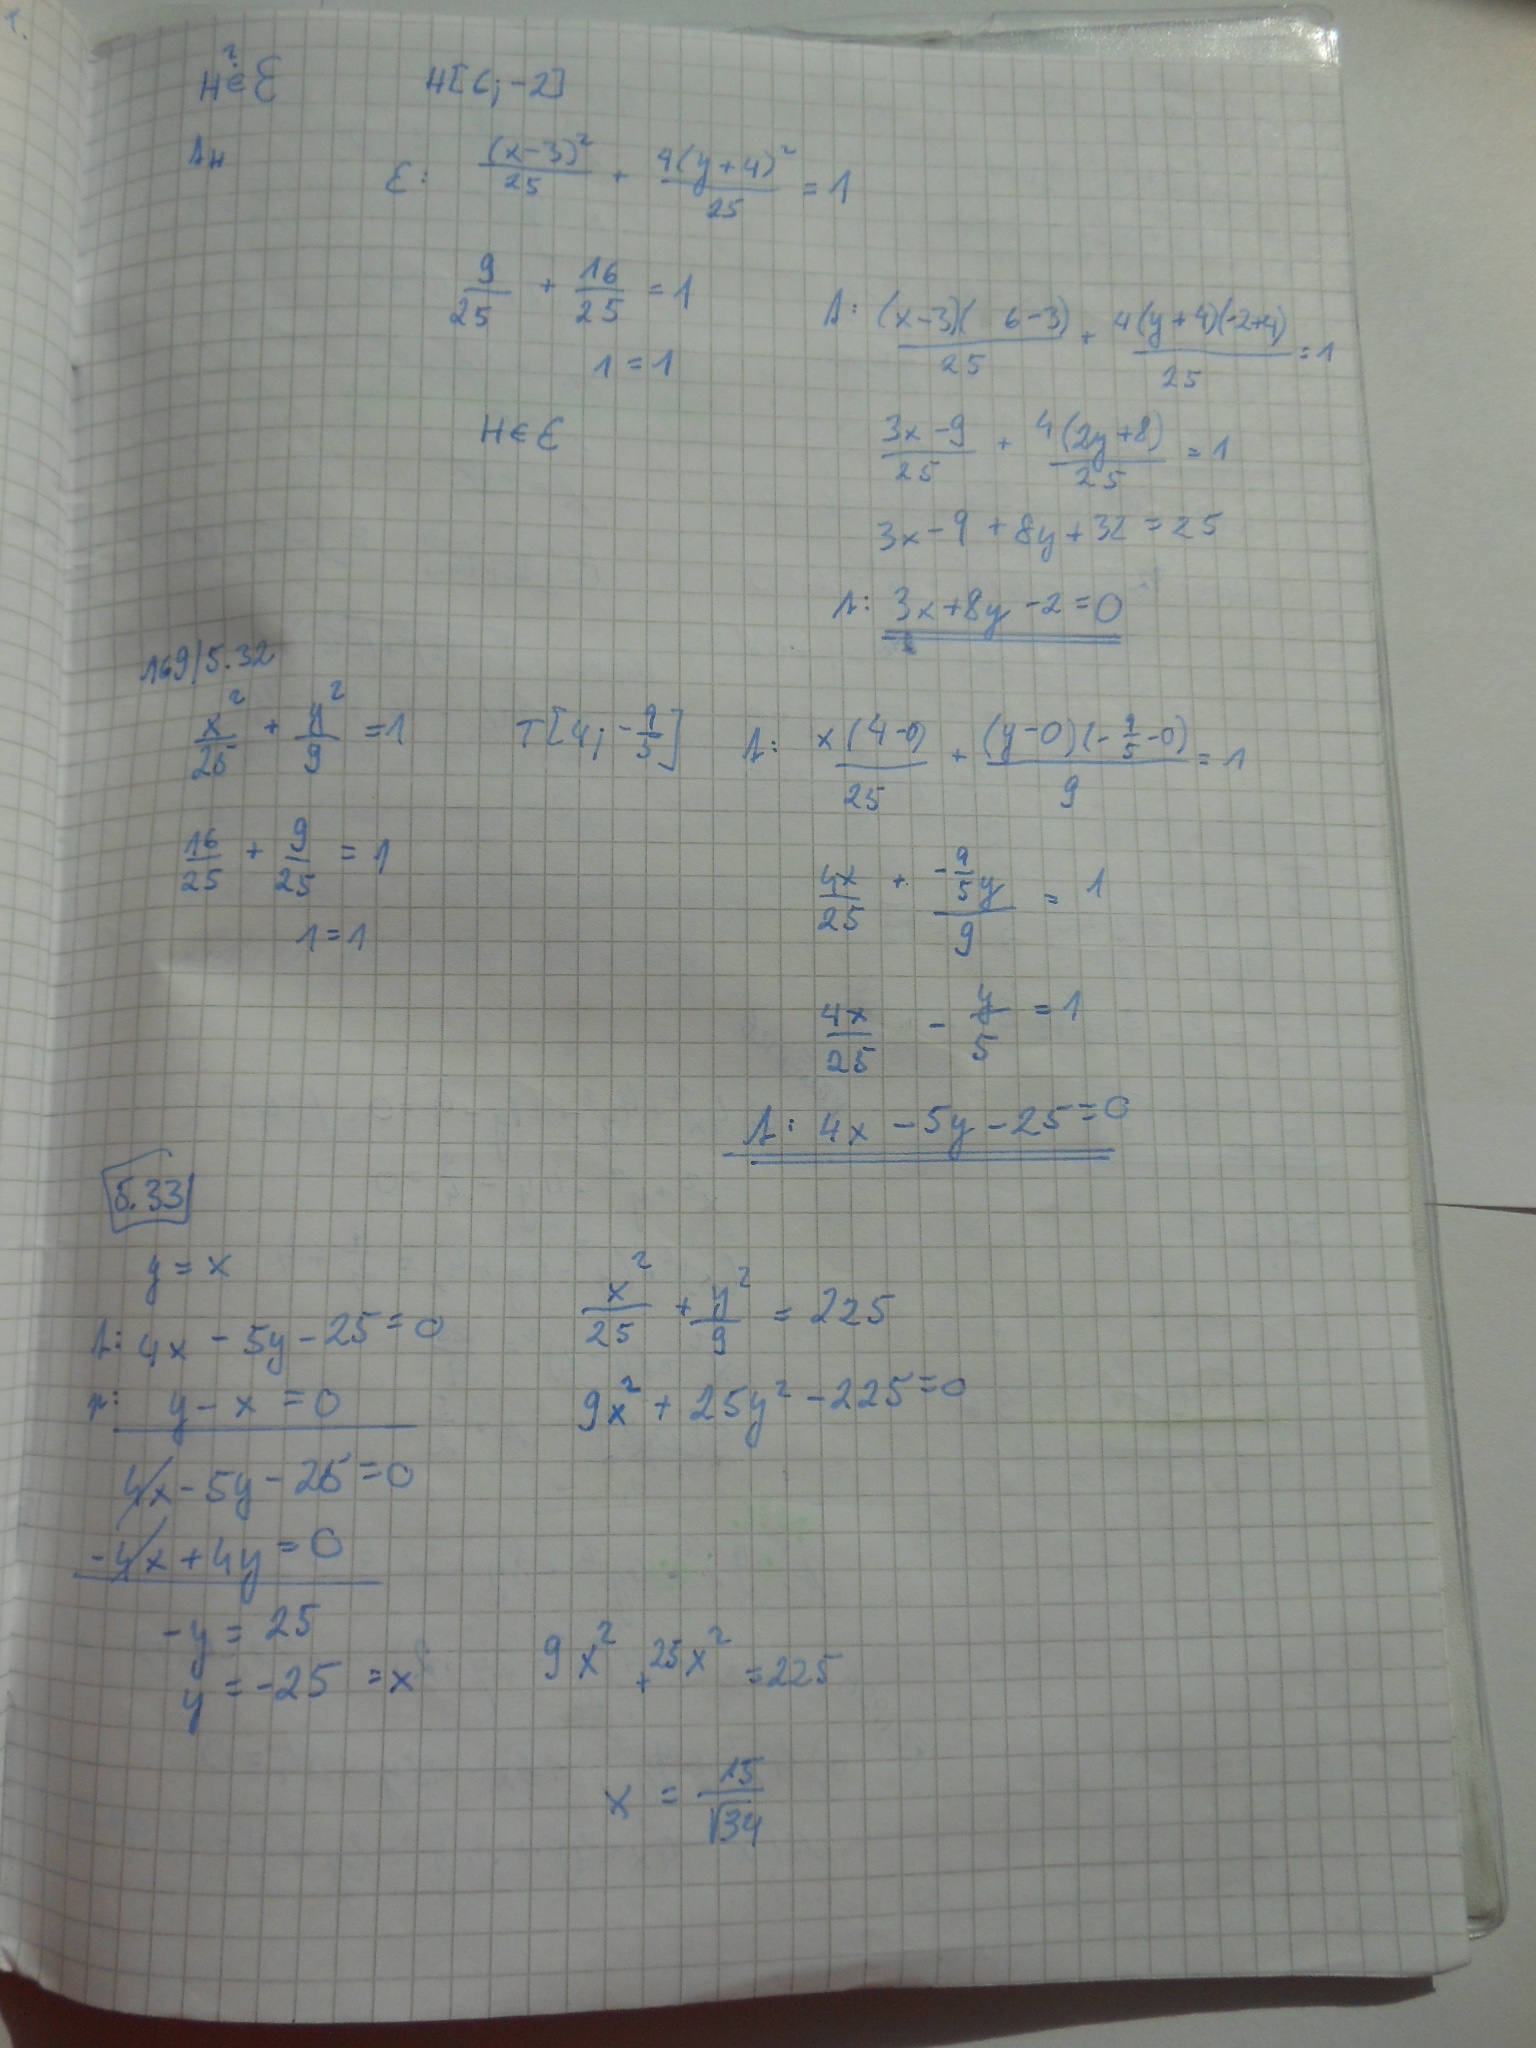 H ∈? ℰ H[6; -2]
t_H
ℰ: (x-3)²/25 + 4(y+4)²/25 = 1
9/25 + 16/25 = 1
1 = 1
H ∈ ℰ
t: (x-3)(6-3)/25 + 4(y+4)(-2+4)/25 = 1
3x-9/25 + 4(2y+8)/25 = 1
3x - 9 + 8y + 32 = 25
t: 3x + 8y - 2 = 0
169/5.32
x²/25 + y²/9 = 1 T[4; -9/5]
16/25 + 9/25 = 1
1 = 1
t: x(4-0)/25 + (y-0)(-9/5-0)/9 = 1
4x/25 + -9/5y/9 = 1
4x/25 - y/5 = 1
t: 4x - 5y - 25 = 0
5.33
y = x
t: 4x - 5y - 25 = 0
p: y - x = 0
4x - 5y - 25 = 0
-4x + 4y = 0
-y = 25
y = -25 = x
x²/25 + y²/9 = 225
9x² + 25y² - 225 = 0
9x² + 25x² = 225
x = 15/√34